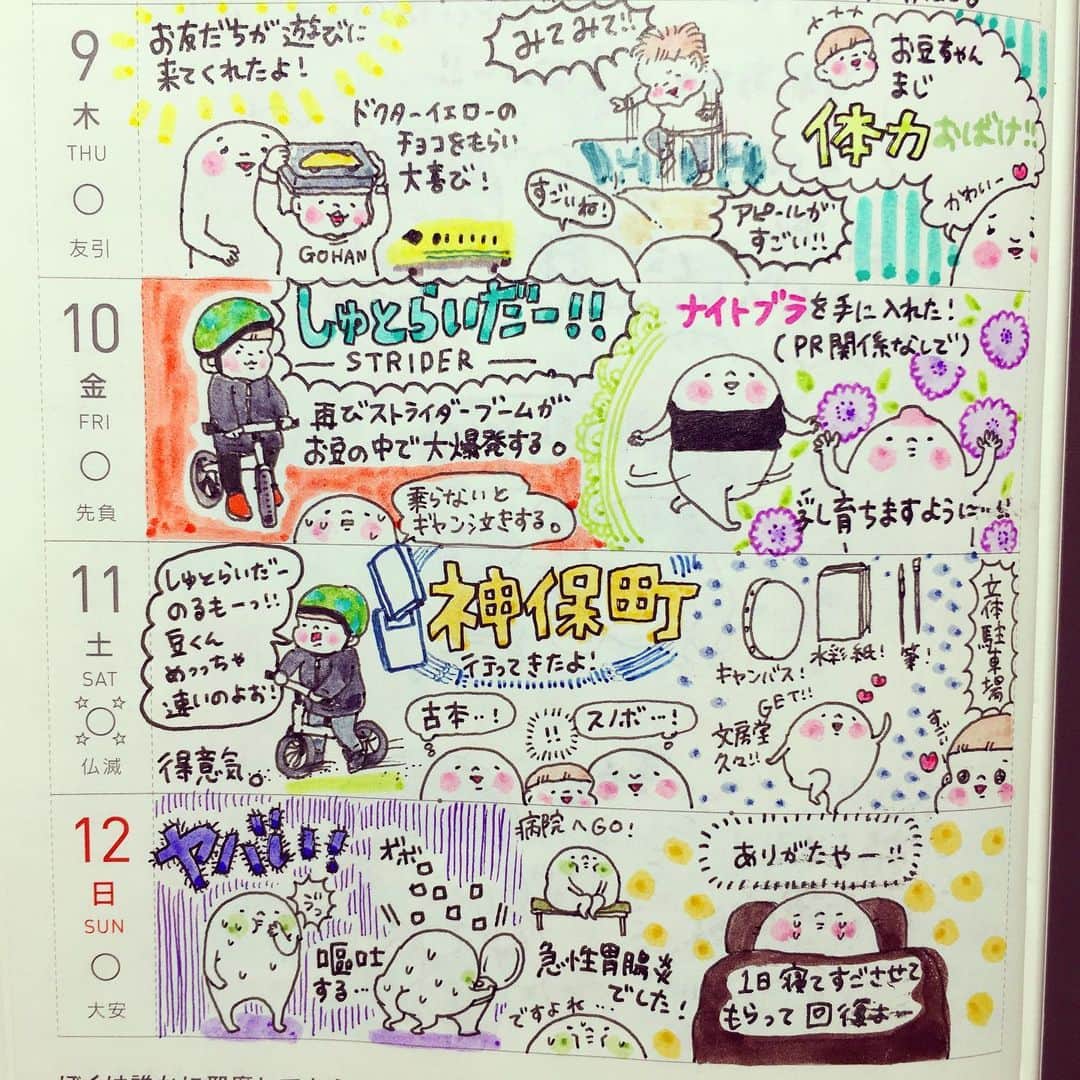 9
木
THU
友引
お友だちが遊びに
来てくれたよ！
ドクターイエローの
チョコをもらい
大喜び！
GOHAN
みてみて!!
すごいね!
アピールが
すごい!!
お豆ちゃん
まじ
体力おばけ!!
かわいー
10
金
FRI
先負
しゅとらいだー!!
STRIDER
再びストライダーブームが
お豆の中で大爆発する。
乗らないと
ギャン泣きをする。
ナイトブラを手に入れた！
(PR関係なしで)
育ちますように…!
11
土
SAT
仏滅
しゅとらいだー
のるもーっ!!
豆くん
めっっちゃ
速いのよぉ!
得意気。
神保町
行ってきたよ！
古本…!
!!
スノボ…!
キャンバス！
水彩紙！
筆！
GET!!
文房堂
久々!!
立体駐車場
12
日
SUN
大安
ヤバい!
オボロ
嘔吐
する…
病院へGO!
急性胃腸炎
でした！
ですよね..
ありがたやー!!
1日寝てすごさせて
もらって回復